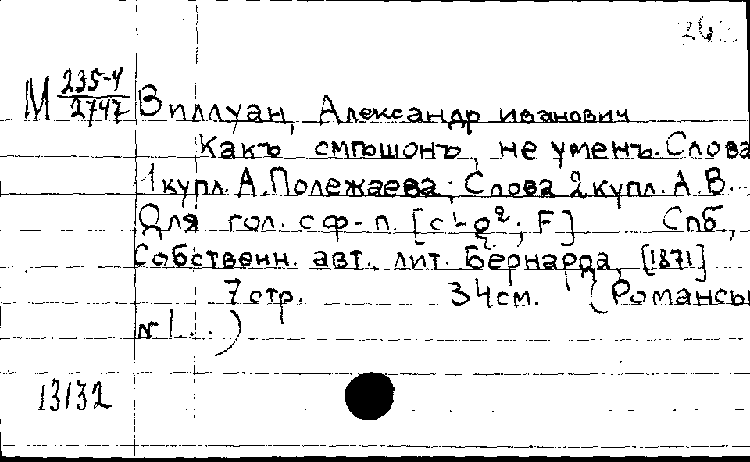 М 235-4/2747 Виллуан, Александр иванович
Какъ смѣшонъ, не уменъ. Слова
1 купл. А. Полежаева; Слова 2 купл. А. В.
Для гол. с ф-п. [c¹-g²; F] Спб,
Собственн. авт. лит. Бернарда, [1871]
7 стр. 34 см. (Романсы
№ 1...)
13132